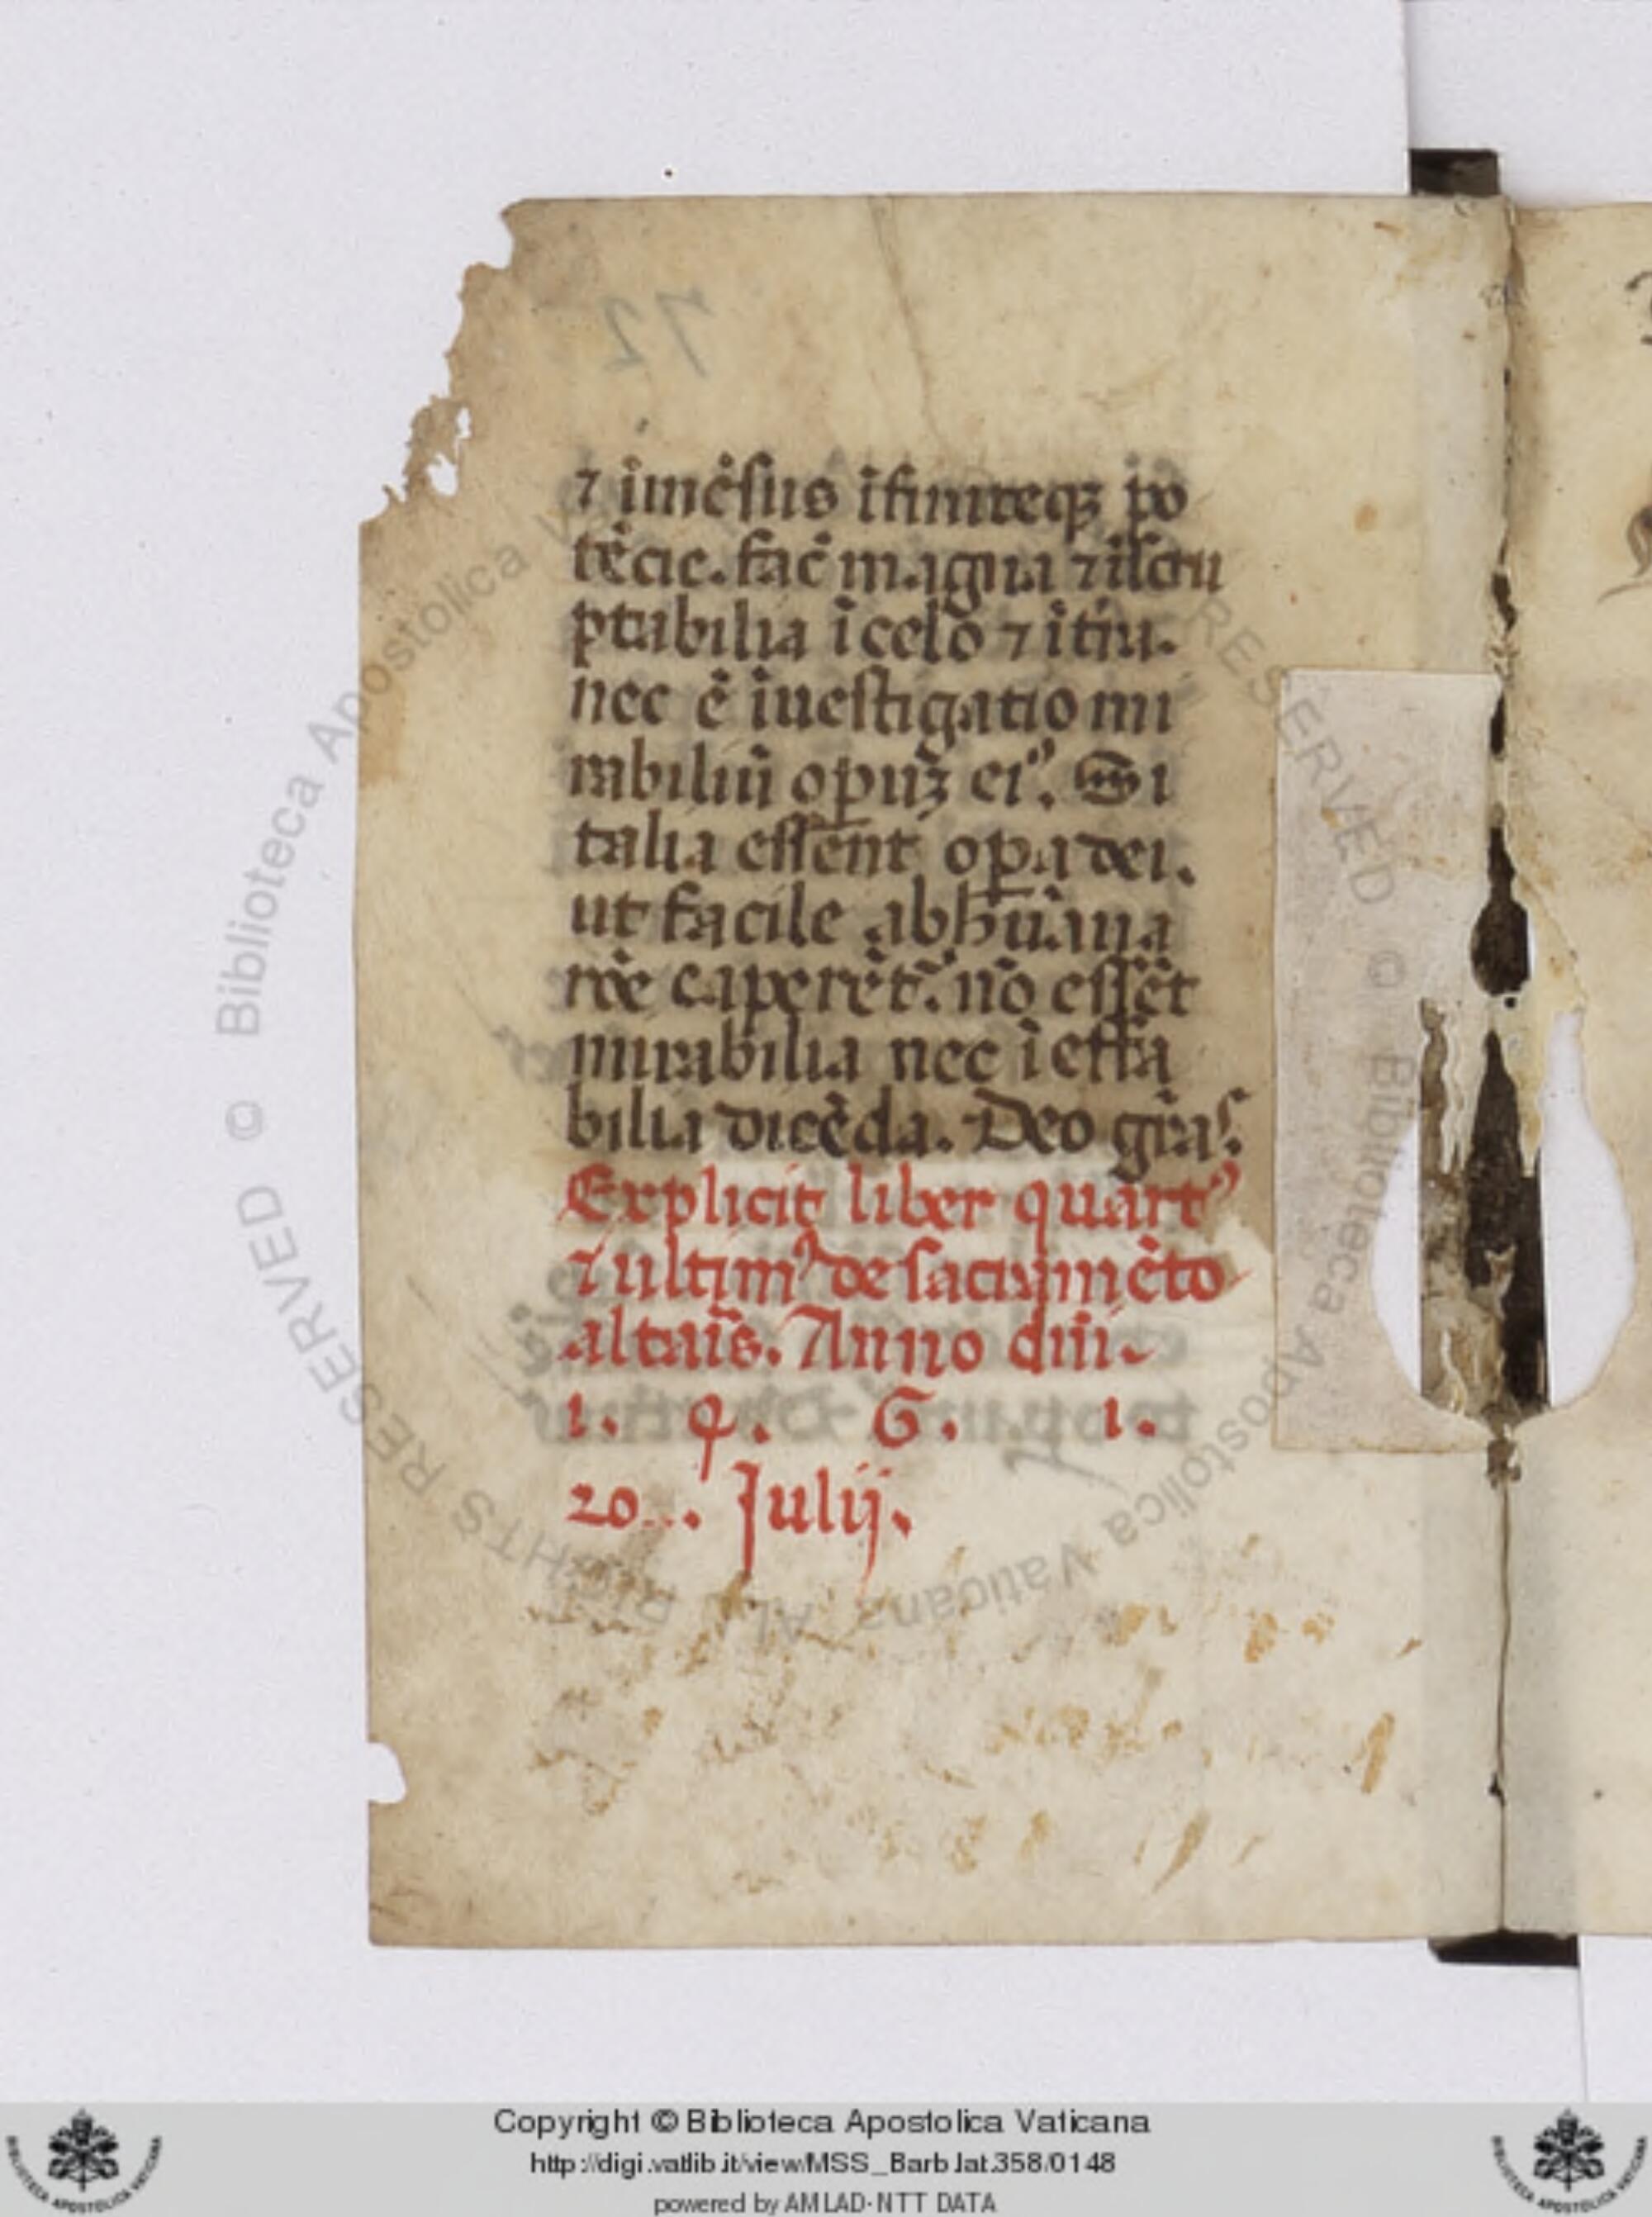 ⁊ imē̄sus īfiniteqꝫ po
tēcie. fac̄ magna ⁊ īscru
ptabilia ī celo ⁊ ī tr̄a.
nec ē īuestigatio mi
rabiliū opuꝫ eiꝰ. Si
talia essent oꝑa dei.
ut facile ab hūana
rōe caperēt᷑. nō essēt
mirabilia nec ī effa
bilia dicēda. Deo gr̄as.
Explicit liber quartꝰ
⁊ ultimꝰ de sacramēto
altaris. Anno dn̄i.
1. 4. 6. 1.
20... Julij.
72
Copyright © Biblioteca Apostolica Vaticana
http://digi.vatlib.it/view/MSS_Barb.lat.358/0148
powered by AMLAD-NTT DATA